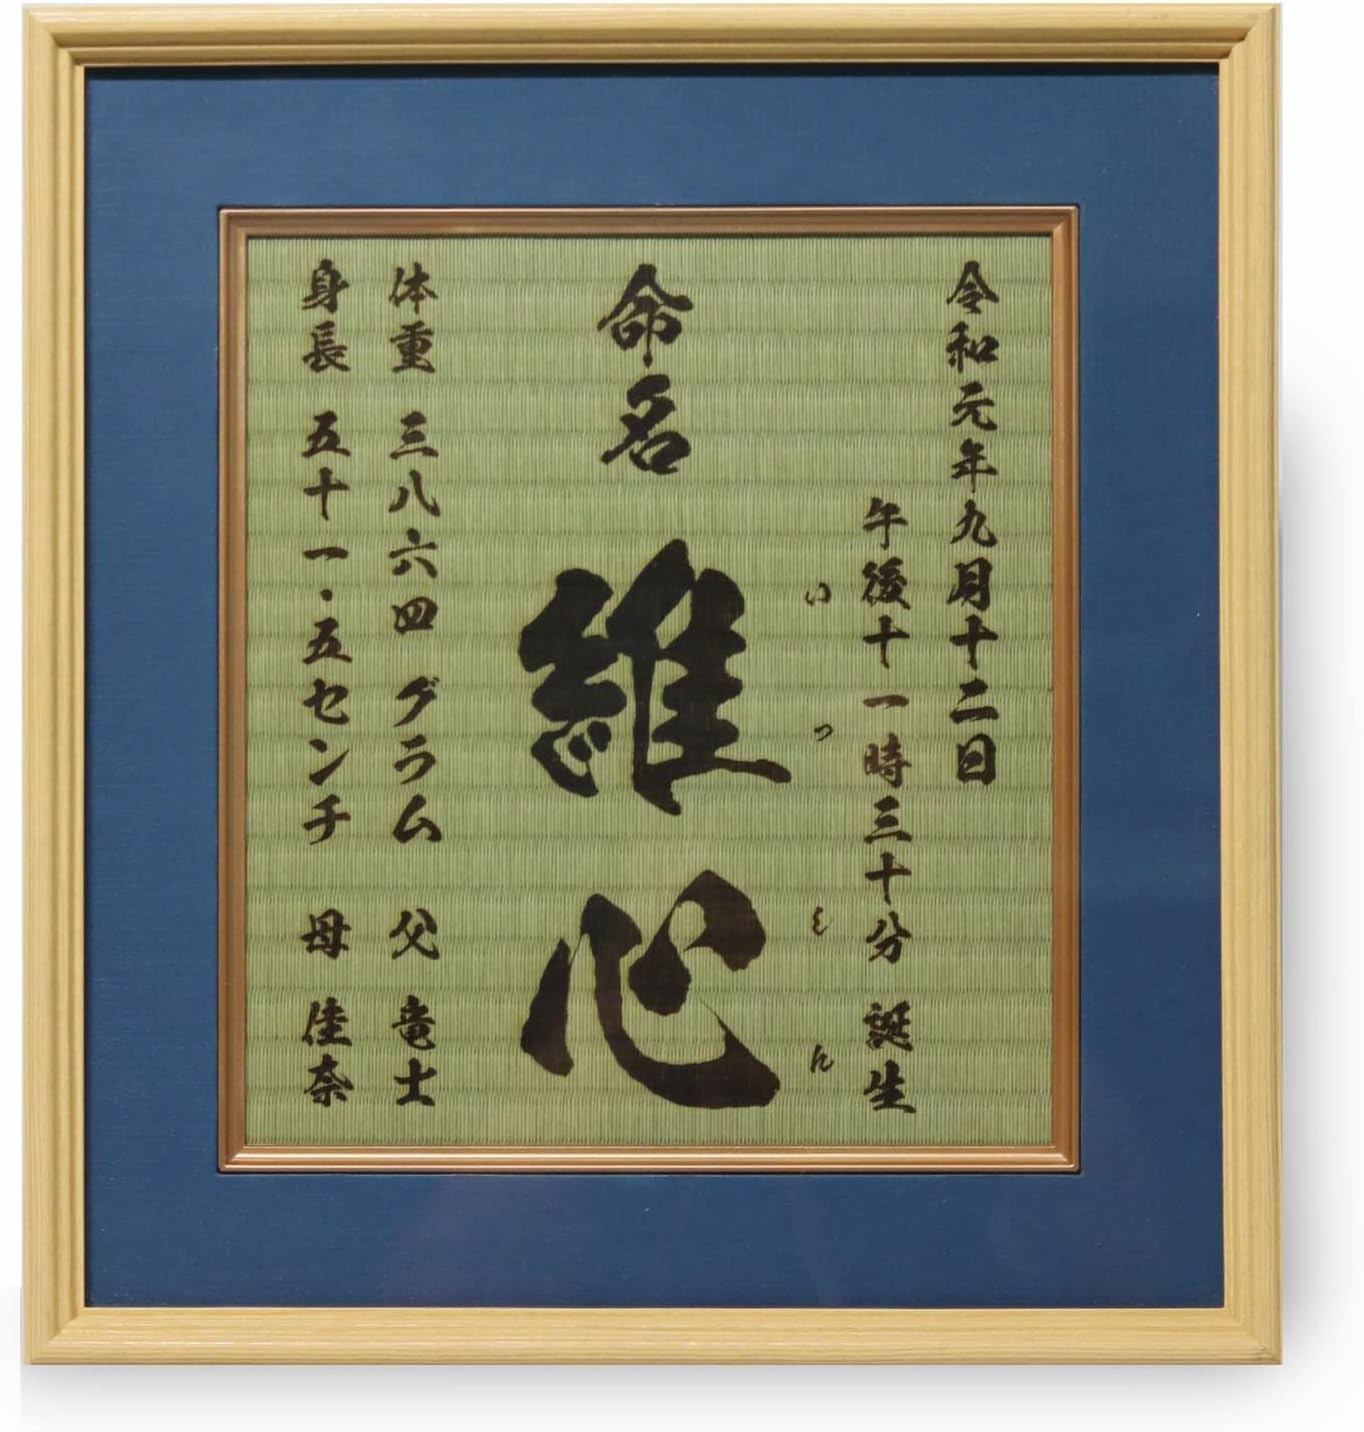 令和元年九月十二日
午後十一時三十分 誕生
いっしん
命名 維心
体重 三八六四グラム 父 竜士
身長 五十一・五センチ 母 佳奈